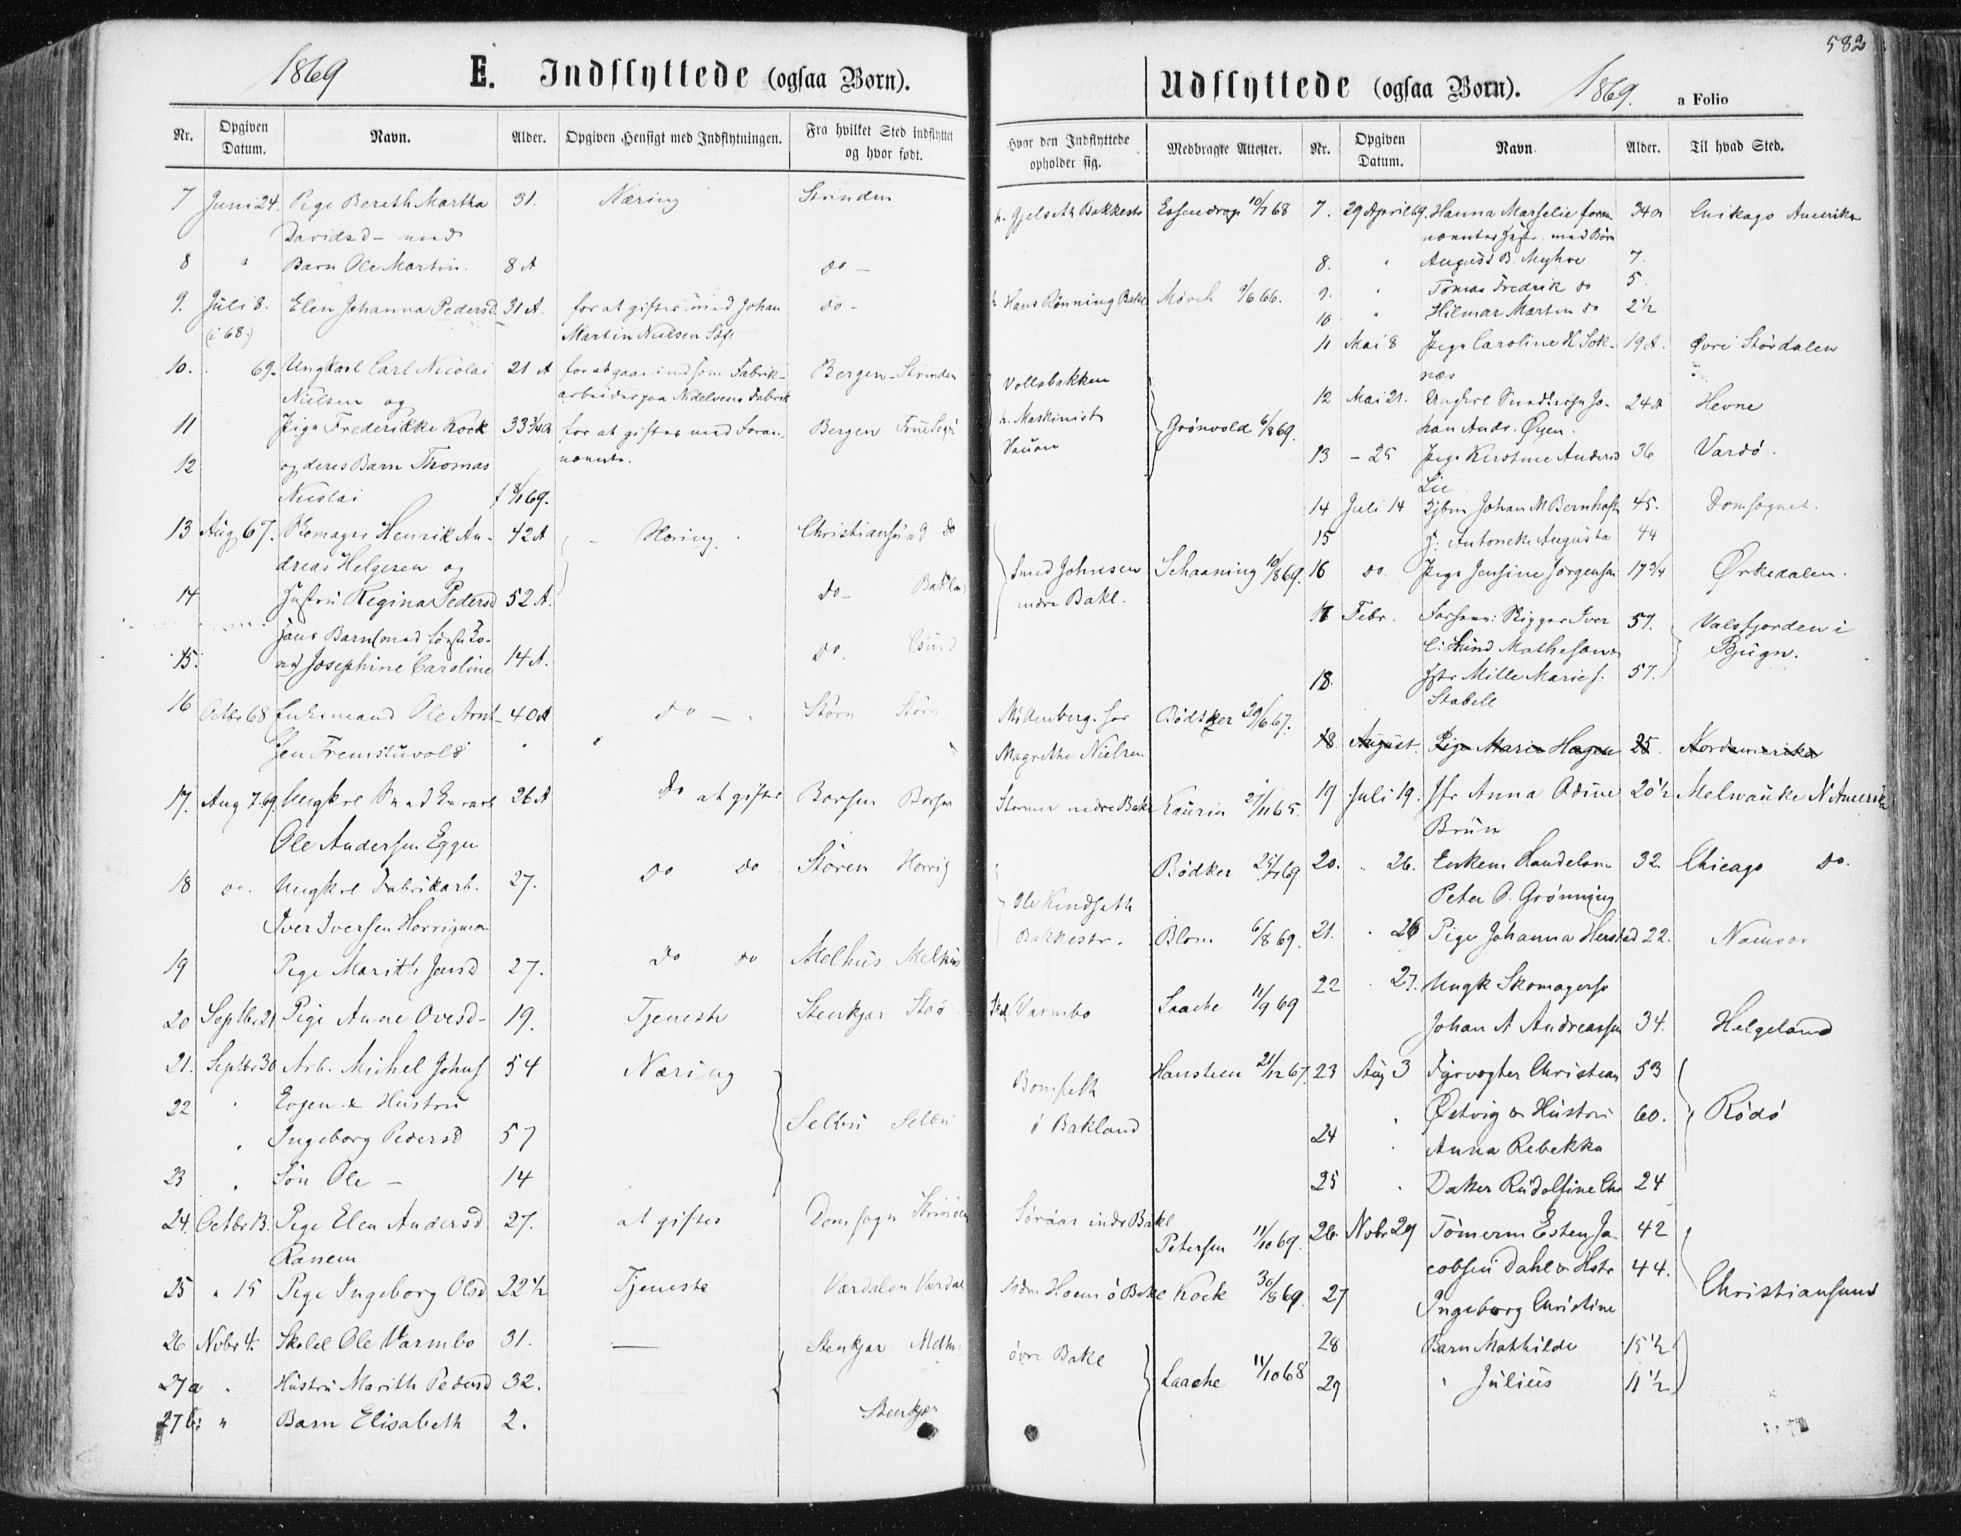 1869 E. Indflyttede (ogsaa Børn).
Nr. Opgiven Datum. Navn. Alder. Opgiven Hensigt med Indflytningen. Fra hvilket Sted indflyttet og hvor født.
7 Juni 24. Pige Bereth Martha 31. Næring Strinden
Davidsd- med
8 " Barn Ole Martin. 8 A do -
9. Juli 8. Elen Johanna Pedersd 31 A. for at giftes med Johan do -
(i 68.) Martin Nielsen
10. 69. Ungkarl Carl Nicolai 21 A for at gaae ind som Fabrik- Bergen - Strinden
Nielsen og arbeider paa Nidelvens Fabrik
11 Pige Frederikke Kock 33 3/4 a for at giftes med Foran- Bergen
12 og deres Barn Thomas nævnte.
Nicolai f 8/1 69.
13 Aug 67. Skomager Henrik An- 42 A - Næring. Christiansund do
dreas Helgesen og
14 Hustru Regina Pedersd 52 A. do- Bakland
hans Barn (med første Ko-
15. ne) Josephine Caroline 14 A. do. Csund
16 Octbr 68 Enkemand Ole Arnt- 40 A do - Støren Støren
sen Fremstuvold
17. Aug 7. 69. Ungkrl Snedkerarb 26 A do at giftes Borsen Borsen
Ole Andersen Eggen
18 do. Ungkrl Fabrikarb. 27. do do Støren Horrig
Iver Iversen Horrigmoe
19 Pige Marith Jensd 27. do do Melhus Melhus
20 Septbr 21 Pige Anne Ovesd- 19. Tjeneste Stenkjær Stod
21. Septbr 30 Arb. Michel Johns 54 Næring
22 " Evjen & Hustru Selbu Selbu
" Ingeborg Pedersd 57
23 " Søn Ole - 14
24. Octbr 13. Pige Elen Andersd 27. at giftes Domsogn Strinden
Ranem
25 " 15 Pige Ingeborg Olsd 22 1/2 Tjeneste Værdalen Værdal
26 Nvbr 4. Skolel Ole Varmbo 31. — Stenkjær
27a " Hustru Marith Pedersd 32.
27b: " Barn Elisabeth 2. Stenkjær
582
Udflyttede (ogsaa Børn). 1869. a Folio
Hvor den Indflyttede opholder sig. Medbragte Attester. Nr. Opgiven Datum. Navn. Alder. Til hvad Sted.
h. Gjelseth Bakkestr Essendrop 10/7 68 7. 29 April 69. Hanna Marselie foran 34 a Chikago Amerika
nævntes Hustr. med Børn
8. " August B. Myhre 7.
h Hans Rønning Bakl Mørch 9/6 66. 9. " Tomas Fredrik do 5.
10 " Hilmar Martin do 2 1/2
11 Mai 8 Pige Caroline K Sok- 19 A. Øvre Stördalen
Vollsbakken næs
12 Mai 21. Ungkrl Snedkersv Jo- 24 A Hevne
h. Maskinist Grönvold 6/8 69. han Andr. Øyen.
Hansen 13 - 25 Pige Kirstine Andersd 36 Vardø.
Lie
14 Juli 14 Kjbm Johan M Bernhoft 45. Domsognet.
15 H: Antonette Augusta 44
Smed Johnsen Schaaning 10/8 69. 16 do. Pige Jensine Jörgensen 17 3/4 Ørkedalen.
indre Bakl.
17 Febr. Rigger Iver 57. Valsfjorden i
C. Lund Mathesen & Bjugn.
18. Hstr Mille Marie f. 57.
Stabell
Möllenberg. hos Bødtker 29/6 67.
Magrethe Nielsen 18 August. Pige Marie Hagen 25. Nordamerika
Stormer nedre Bakl Kaurin 27/11 65. 19 Juli 19. Jfr Anna Odine 20 1/2 Melwauke N Amerika
Brün
Bødker 25/7 69 20. " 26. Enkem Handelsm 32. Chicago do.
Ole Kindseth Peter O. Grönning
Bakkestr. Blom 6/8 69. 21. " 26 Pige Johanna Herstad 22. Namsos
22 " 27. Ungk Skomagersv
Skol Varmbo Laache 11/9 69 Johan A Andreassen 34. Helgeland
Bomseth Hansteen 21/12 67. 23 Aug 3 Fyrvogter Christian 53
ø Bakland " Östvig & Hustru 60. Rödö
24 " Anna Rebekka
25 " Datter Rudolfine Chr 24
Søraas indr Bakl Petersen 11/10 69. 26. Nvbr 29 Tömerm Esten Ja- 42
cobsen Dahl & Hstr 44. Christiansund
Mdm Hoem ö Bakl Kock 30/8 69. 27 Ingeborg Christine
øvre Bakl Laache 11/10 68 28 Barn Mathilde 15 1/2
29 " Julius 11 1/2